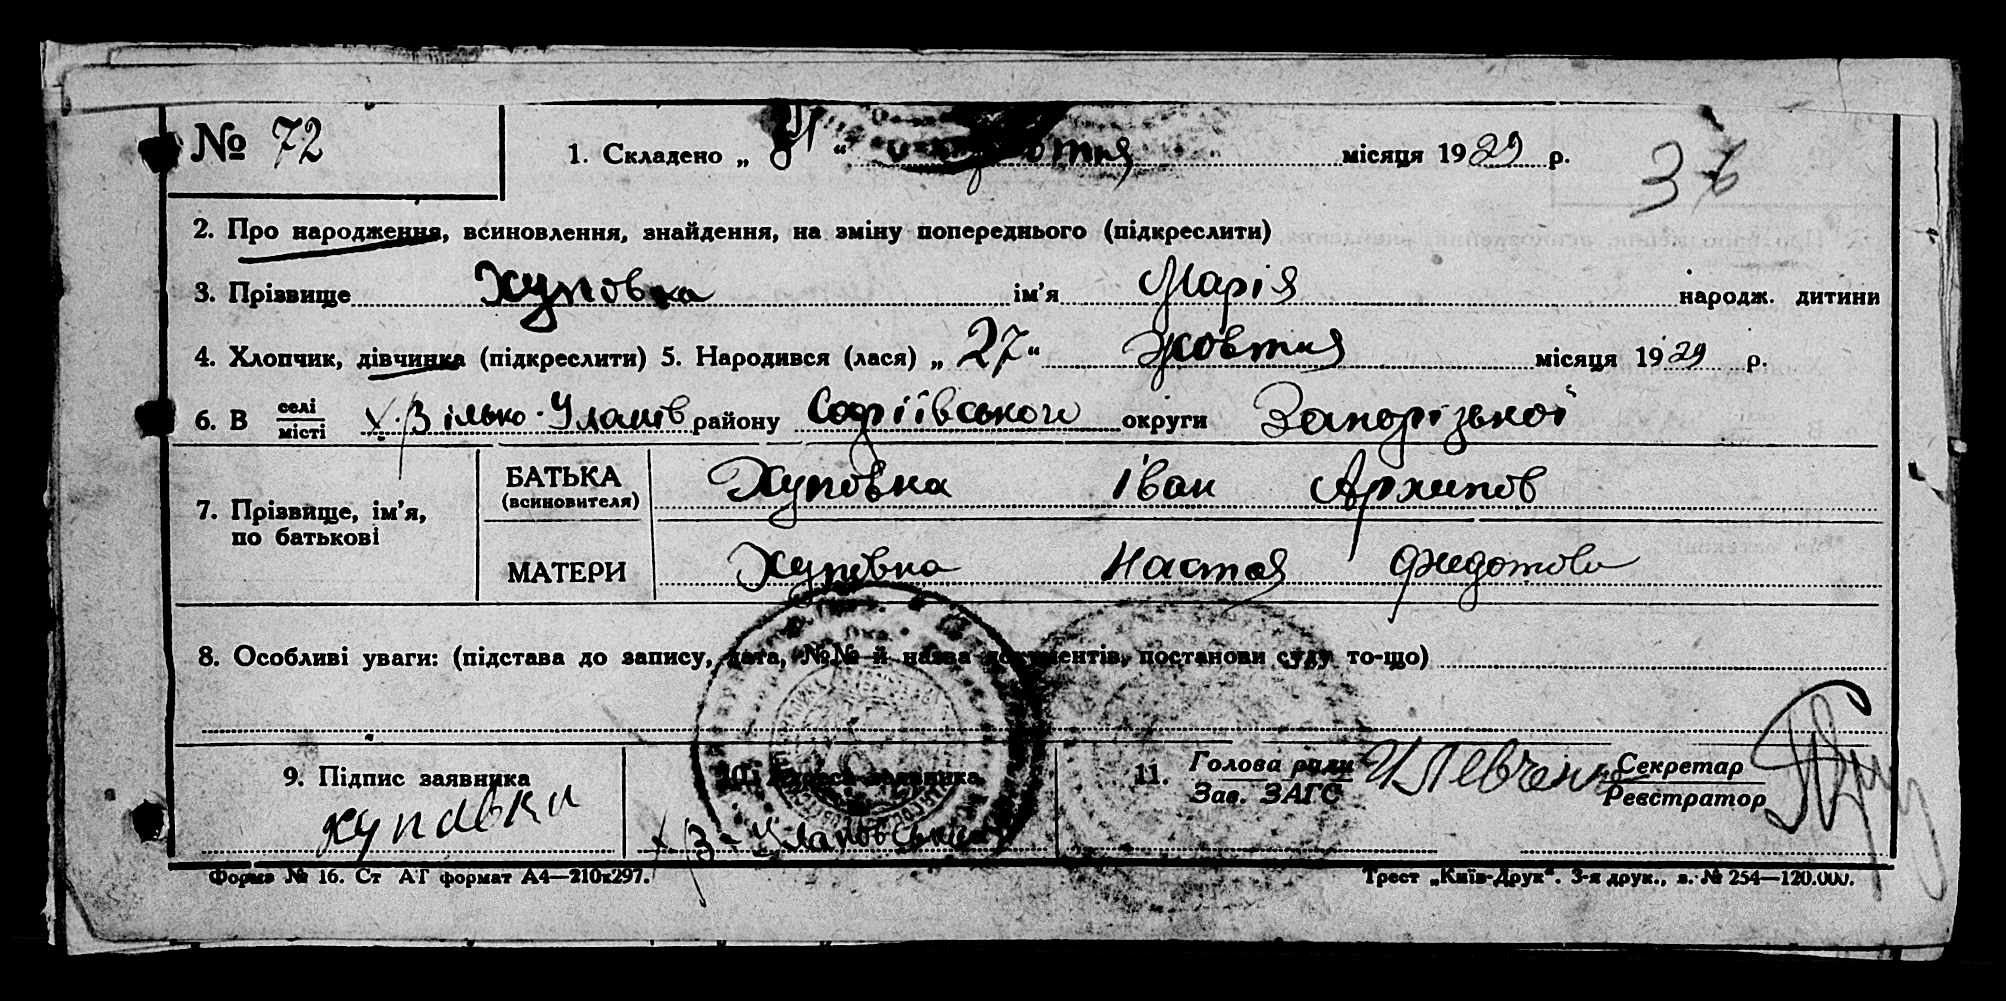 № 72
1. Складено „ “ жовтня місяця 1929 р.
36
2. Про народження, всиновлення, знайдення, на зміну попереднього (підкреслити)
3. Прізвище Хуповка ім’я Марія народж. дитини
4. Хлопчик, дівчинка (підкреслити) 5. Народився (лася) „ 27 “ жовтня місяця 1929 р.
6. В селі місті х. Вілько-Уланів району Софіївського округи Запорізької
7. Прізвище, ім’я, по батькові
БАТЬКА (всиновителя) Хуповка Іван Архипов
МАТЕРИ Хуповка Настя Федотова
8. Особливі уваги: (підстава до запису, дата, №№ й назва документів, постанови суду то-що)
9. Підпис заявника
Хуповка
10. Адреса заявника
11. Голова ради Зав. ЗАГС Левченко Секретар Реєстратор
Форма № 16. Ст АГ формат А4—210х297.
Трест „Київ-Друк“. 3-я друк., з. № 254—120.000.